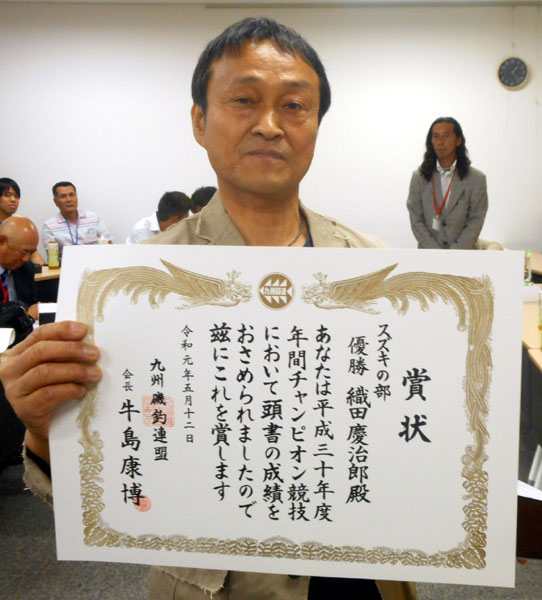 賞状
スズキの部
優勝 織田慶治郎殿
あなたは平成三十年度
年間チャンピオン競技
において頭書の成績を
おさめられましたので
茲にこれを賞します
令和元年五月十二日
九州磯釣連盟
会長 牛島康博